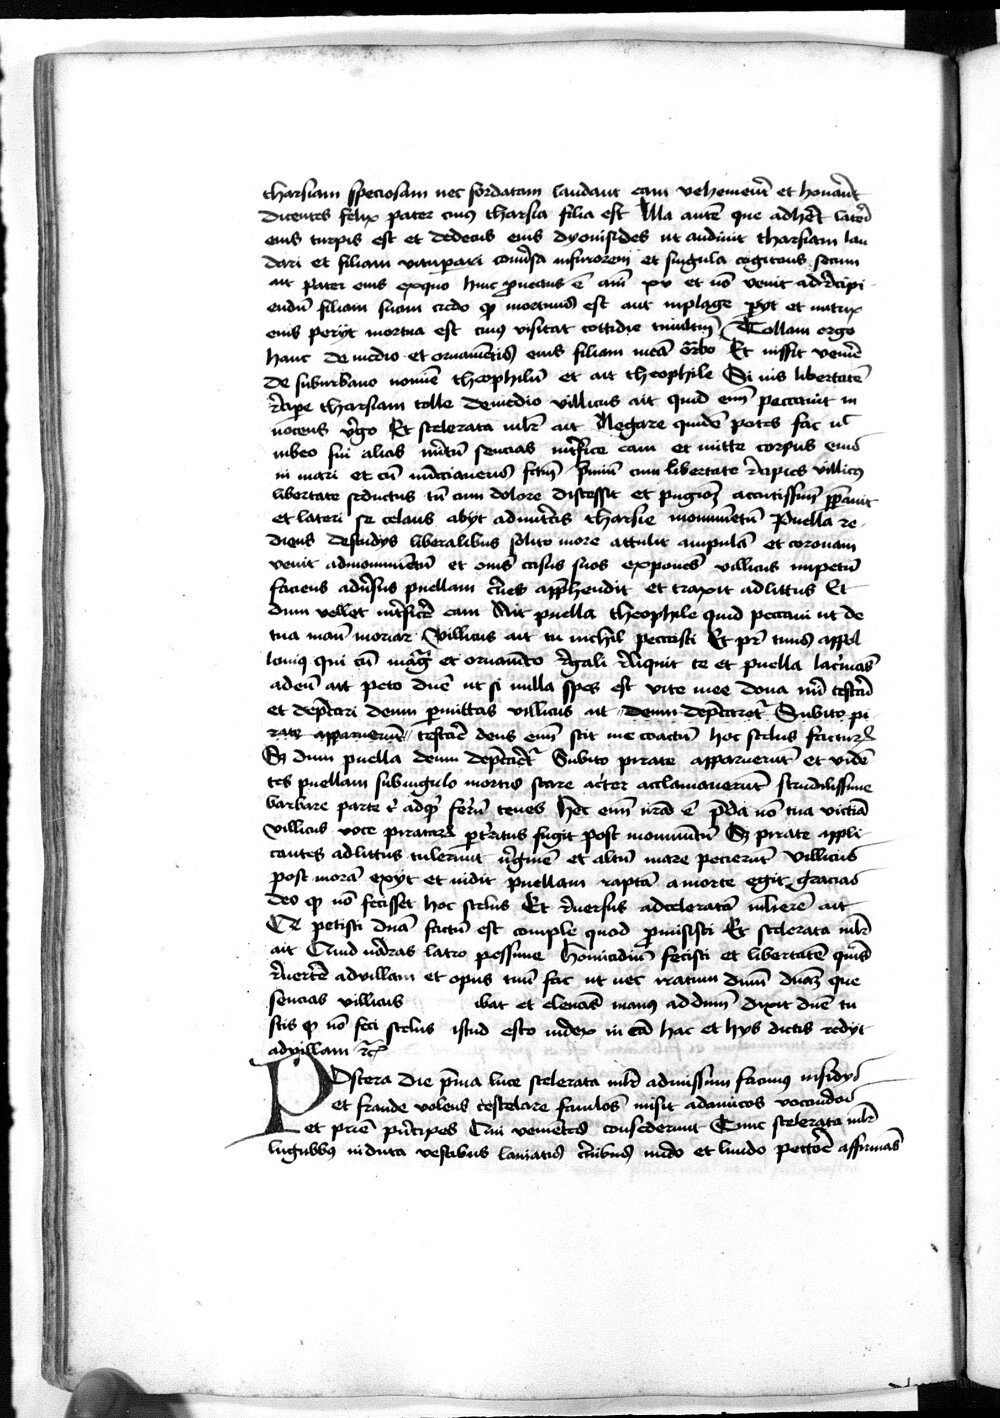 tharsiam speciosam nec sordatam laudant eam vehement̄ et honāt
dicentes felix pater cuius tharsia filia est Illa autē que adhēt lateri
eius turpis est et dedecus eius dyonisides ut audiuit tharsiam lau
dari et filiam vituperari conūsa in furorem et singula cogitans secum
ait pater eius ex quo hinc profectus ē ann̄ xv et nō venit ad recipi
endū filiam suam credo qꝫ mortuus est aut in pelage perijt et nutrix
eius perijt mortua est cuius visitat cottidie Tollam ergo
hanc de medio et ornamentis eius filiam meā orbo Et missit venire
de suburbano nomīe theophilū et ait theophile Si uis libertatē
rape tharsiam tolle de medio villicus ait quid enī peccauit in
nocens v̄go Et scelerata mlr̄ ait Negare quidē potes fac ut
iubeo sin alias sencias int̄fice eam et mitte corpus eius
in mari et cū nūctiaueris factū p̄miū cum libertate recipies villicus
libertate seductus tn̄ cum dolore discessit et pugionē accutissimū p̄parauit
et lateri se celans abijt ad nutricis tharsie monumentū Puella re
diens de studijs liberalibus solito more attulit ampulā et coronam
venit ad monumentū et om̄s casus suos exponēs villicus impetū
faciens adūsus puellam crines app̄hendit et traxit ad littus Et
dum vellet int̄ficere eam Ait puella theophile quid peccaui ut de
tua manū moriar Villicus ait tu nichil peccasti Et pr̄ tuus appol
lonius qui cū mag̃ et ornamento regali reliquit te et puella lacrimās
ad eū ait peto dn̄e ut si nulla spes est vite mee dona mī testari
et dep̄cari deum permittas villicus ait deum dep̄care Subito pi
rate apparuerunt testare deus enī scit me coactū hoc scelus facturū
Sꝫ dum puella deum dep̄caret̄ Subito pirate apparuerunt et vidē
tes puellam sub iugulo mortis stare acriter acclamauerunt crudelissime
barbare parce et ferrū tenes hec enī nr̄a ē p̄da nō tua victiā
villicus voce piratarū perterritus fugit post monumentū Sꝫ pirate appli
cantes ad littus tulerunt v̄ginē et altū mare pecierunt villicus
post morā exijt et uidit puellam raptā a morte egit gracias
deo qꝫ nō fecisset hoc scelus Et reuersus ad celeratā mlierē ait
petisti dn̄a factū est comple quod promisisti Et scelerata mlr̄
ait Quid narras latro pessime homicidiū fecisti et libertatē queris
reuertere ad villam et opus tuū fac ut nec iratum dn̄m dn̄amqꝫ que
sencias villicus ibat et eleuās manus ad dn̄m dixit dn̄e tu
scis qꝫ nō feci scelus istud esto iudex in eā hac et hijs dictis redijt
ad villam rc̄
Postera die p̄ma luce scelerata mlr̄ admissum facinus insidijs
et fraude volens celare famulos misit ad amicos vocandos
et prīe p̄ncipes Qui venientes consederunt Tunc scelerata mlr̄
lugubrꝰ induta vestibus laniatis c̄nibus nudo et liuido pectore affirmās